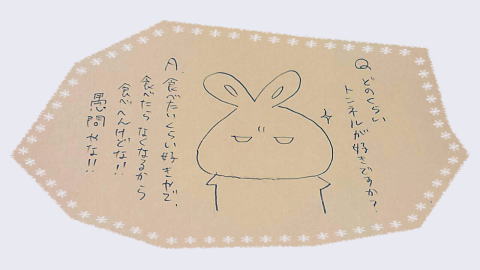 Q. どのくらい
トンネルが好きですか?
A. 食べたいくらい好きやで。
食べたらなくなるから
食べへんけどな!!
愚問やな!!